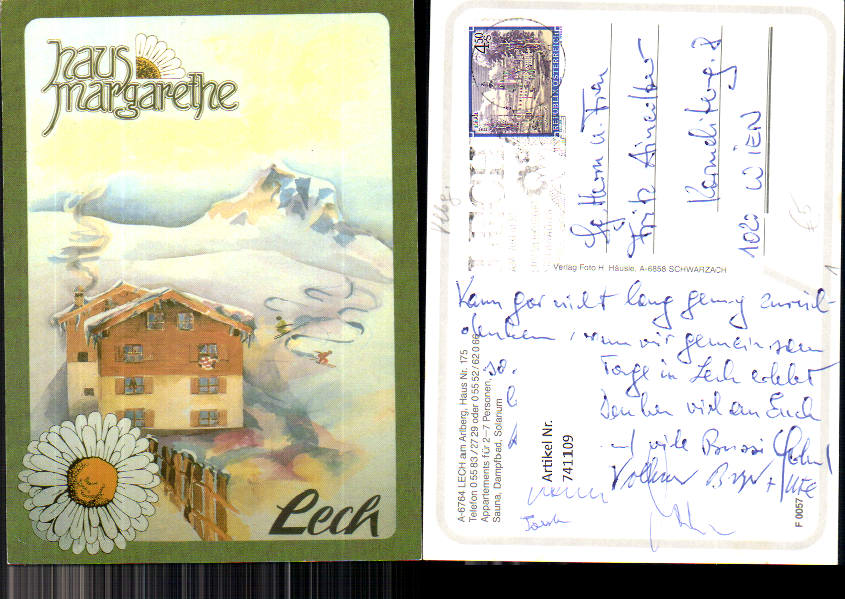 haus
margarethe
Lech
4.50
REPUBLIK ÖSTERREICH
LECH
Herrn u. Frau
Fritz
1020 WIEN
Vlbg.
€5
Verlag Foto H. Häusle, A-6858 SCHWARZACH
Kann gar nicht lang genug zurück-
denken, wann wir gemeinsam
Tage in Lech erlebt
Denken viel an Euch
und viele Bussi
Volkmar + Ute
A-6764 LECH am Arlberg, Haus Nr. 175
Telefon 0 55 83 / 27 29 oder 0 55 52 / 6 20 86
Appartements für 2–7 Personen,
Sauna, Dampfbad, Solarium
Artikel Nr.
741109
F 0057